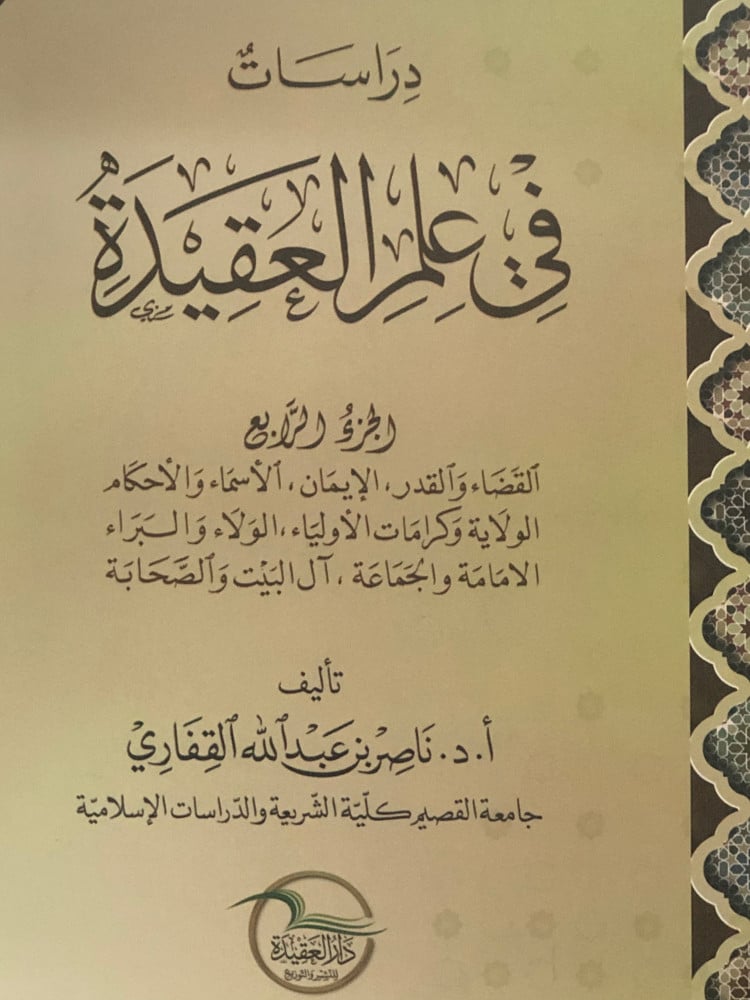 دِرَاسَاتٌ
فِيْ عِلْمِ الْعَقِيْدَةِ
الجزءُ الرَّابع
القَضَاء وَالقدر، الإيمَان، الأسمَاء وَالأحكَام
الولَاية وَكرَامَات الأوليَاء، الوَلَاء وَالبَرَاء
الامَامَة والجَمَاعَة، آل البَيْت وَالصَّحَابَة
تأليف
أ. د. نَاصِر بن عَبْد الله القِفَارِيْ
جامعة القصيم كلّيّة الشّريعة والدّراسات الإسلاميّة
دَارُ العَقِيْدَة
للنّشر والتّوزيع